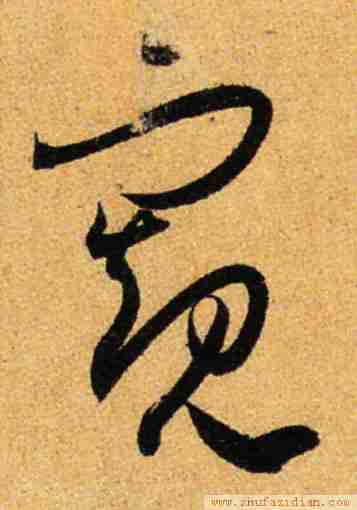 窺
www.shufazidian.com